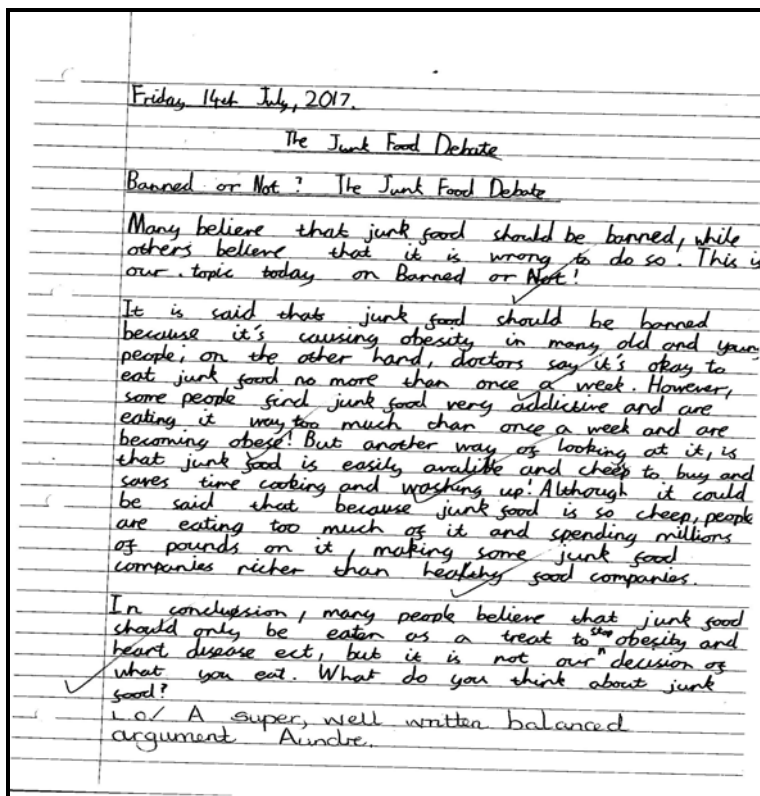 Friday 14th July, 2017.
The Junk Food Debate
Banned or Not? The Junk Food Debate
Many believe that junk food should be banned, while
others believe that it is wrong to do so. This is
our topic today on Banned or Not!
It is said that junk food should be banned
because it's causing obesity in many old and young
people; on the other hand, doctors say it's okay to
eat junk food no more than once a week. However,
some people find junk food very addictive and are
eating it way too much than once a week and are
becoming obese! But another way of looking at it, is
that junk food is easily avalible and cheep to buy and
saves time cooking and washing up! Although it could
be said that because junk food is so cheep, people
are eating too much of it and spending millions
of pounds on it, making some junk food
companies richer than healthy food companies.
In conclusion, many people believe that junk food
should only be eaten as a treat to stop obesity and
heart disease ect, but it is not our decision of
what you eat. What do you think about junk
food?
L.O/ A super, well written balanced
argument Aundre.